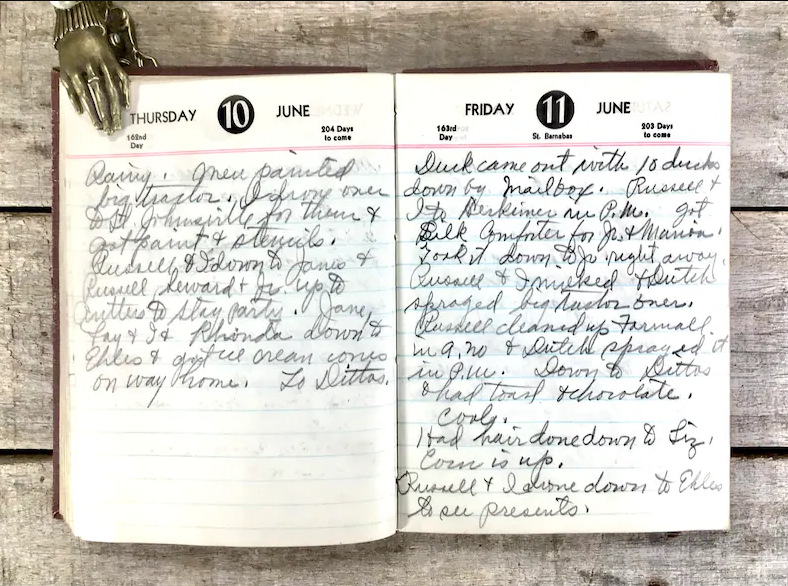 THURSDAY 10 JUNE
162nd Day
204 Days to come
Rainy. Men painted
big tractor. I drove over
to St. Johnsville for them &
got paint & stencils.
Russell & I down to Janes &
Russell, Seward & Jr. up to
to stag party. Jane,
Fay & I & Rhonda down to
Ehles & got ice cream cones
on way home. To Dittos.
FRIDAY 11 JUNE
163rd Day
St. Barnabas
203 Days to come
Duck came out with 10 ducks
down by Mailbox. Russell &
I to Herkimer in P.M. got
Silk Comforter for Jr. & Marion.
Took it down to Jr. right away.
Russell & I milked & Dutch
sprayed big tractor over.
Russell cleaned up Farmall
in a.m. & Dutch sprayed it
in P.M. Down to Dittos
& had toast & chocolate.
Cool.
Had hair done down to Liz.
Corn is up.
Russell & I alone down to Ehles
to see presents.